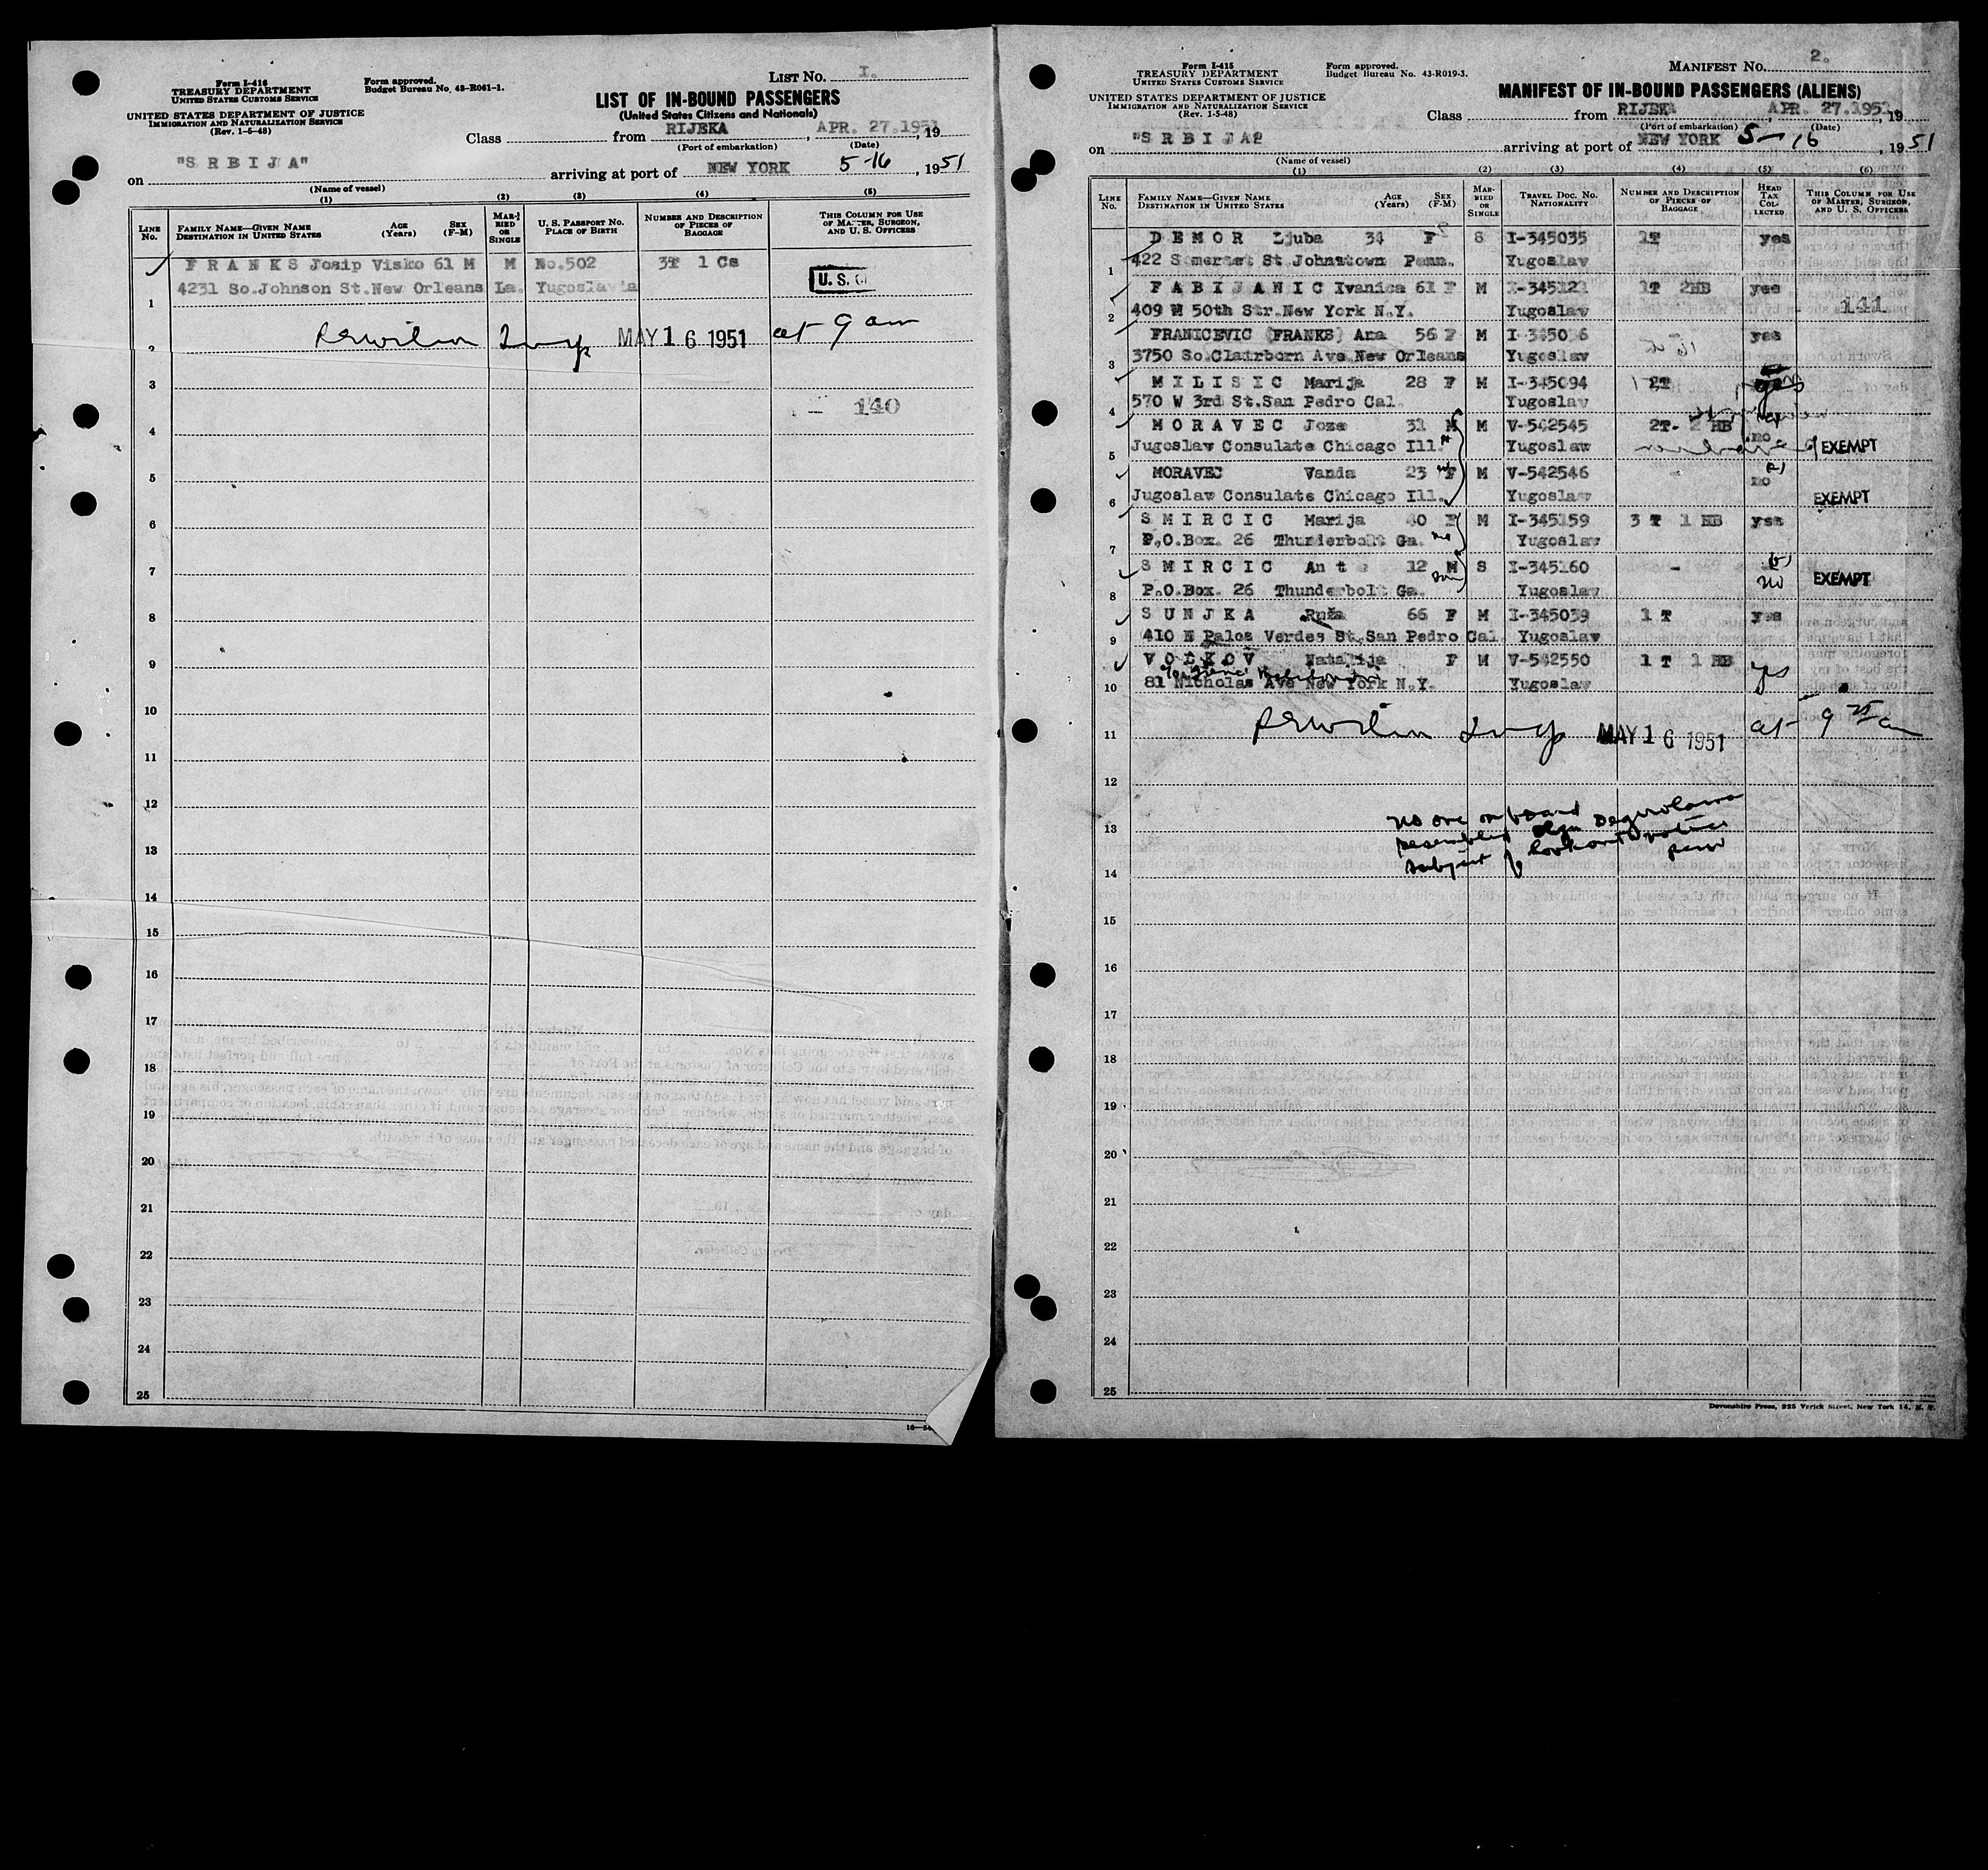 Form I-416
TREASURY DEPARTMENT
UNITED STATES CUSTOMS SERVICE
UNITED STATES DEPARTMENT OF JUSTICE
IMMIGRATION AND NATURALIZATION SERVICE
(Rev. 1-5-48)
Form approved.
Budget Bureau No. 43-R061-1.
LIST No. 1.
LIST OF IN-BOUND PASSENGERS
(United States Citizens and Nationals)
Class from RIJEKA, APR. 27.1951, 19
(Port of embarkation) (Date)
on "S R B I J A" arriving at port of NEW YORK 5-16, 1951
(Name of vessel)
(1) (2) (3) (4) (5)
LINE No. FAMILY NAME—GIVEN NAME DESTINATION IN UNITED STATES AGE (Years) SEX (F-M) MARRIED OR SINGLE U. S. PASSPORT NO. PLACE OF BIRTH NUMBER AND DESCRIPTION OF PIECES OF BAGGAGE THIS COLUMN FOR USE OF MASTER, SURGEON, AND U. S. OFFICERS
F R A N K S Josip Visko 61 M M No.502 3T 1 Cs
1 4231 So.Johnson St.New Orleans La. Yugoslavia U. S.
2 MAY 16 1951 at 9 am
3
4 140
5
6
7
8
9
10
11
12
13
14
15
16
17
18
19
20
21
22
23
24
25
Form I-415
TREASURY DEPARTMENT
UNITED STATES CUSTOMS SERVICE
UNITED STATES DEPARTMENT OF JUSTICE
IMMIGRATION AND NATURALIZATION SERVICE
(Rev. 1-5-48)
Form approved.
Budget Bureau No. 43-R019-3.
MANIFEST No. 2.
MANIFEST OF IN-BOUND PASSENGERS (ALIENS)
Class from RIJEKA, APR. 27.1951, 19
(Port of embarkation) (Date)
on "S R B I J A" arriving at port of NEW YORK 5-16, 1951
(Name of vessel)
(1) (2) (3) (4) (5) (6)
LINE No. FAMILY NAME—GIVEN NAME DESTINATION IN UNITED STATES AGE (Years) SEX (F-M) MARRIED OR SINGLE TRAVEL DOC. NO. NATIONALITY NUMBER AND DESCRIPTION OF PIECES OF BAGGAGE HEAD TAX COLLECTED THIS COLUMN FOR USE OF MASTER, SURGEON, AND U. S. OFFICERS
D E M O R Ljuba 34 F S I-345035 1T yes
1 422 Somerset St Johnstown Penn. Yugoslav
F A B I J A N I C Ivanica 61 F M I-345121 1T 2HB yes
2 409 W 50th Str.New York N.Y. Yugoslav 141
FRANICEVIC (FRANKS) Ana 56 F M yes
3 3750 So.Clairborn Ave.New Orleans Yugoslav
M I L I S I C Marija 28 F M I-345094 2T
4 570 W 3rd St.San Pedro Cal. Yugoslav
M O R A V E C Joze 31 M M V-542545 2T- 2 HB no
5 Jugoslav Consulate Chicago Ill. Yugoslav EXEMPT
MORAVEC Vanda 23 F M V-542546 - no
6 Jugoslav Consulate Chicago Ill. Yugoslav EXEMPT
S M I R C I C Marija 40 F M I-345159 3 T 1 HB yes
7 P.O.Box. 26 Thunderbolt Ga. Yugoslav
S M I R C I C Ante 12 M S I-345160 - no
8 P.O.Box. 26 Thunderbolt Ga. son Yugoslav EXEMPT
S U N J K A Ruža 66 F M I-345039 1 T yes
9 410 N Palos Verdes St.San Pedro Cal. Yugoslav
V O L K O V Natalija F M V-542550 1 T 1 HB yes
10 81 Nicholas Ave New York N.Y. Yugoslav
11 MAY 16 1951 at 9
12
13 no one on board
resembled
14 subject of lookout notice
15
16
17
18
19
20
21
22
23
24
25
Devonshire Press, 225 Varick Street, New York 14, N. Y.